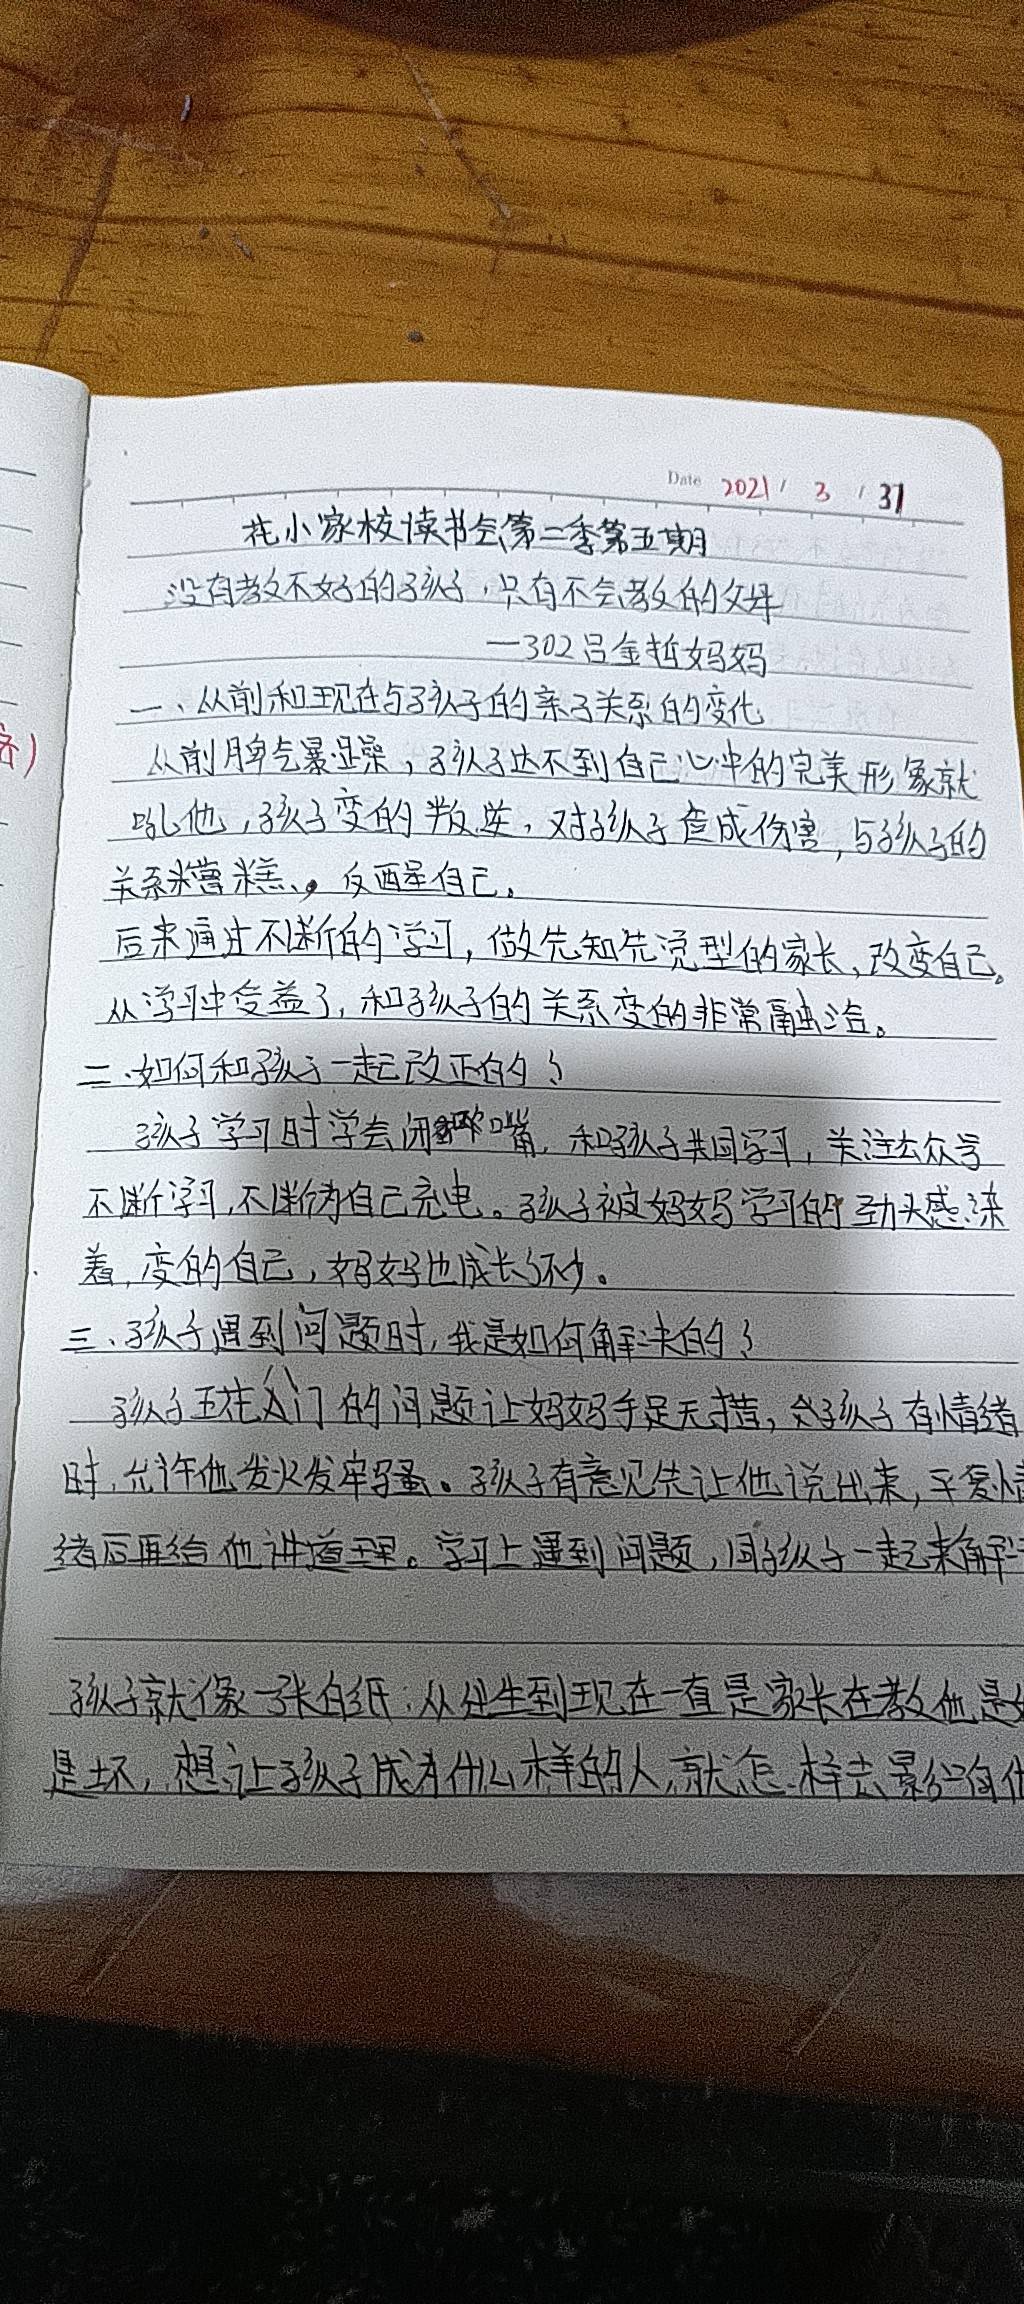 Date 2021 / 3 / 31
花小家校读书会第二季第五期
没有教不好的孩子，只有不会教的父母
—302吕金哲妈妈
一、从前和现在与孩子的亲子关系的变化
从前脾气暴躁，孩子达不到自己心中的完美形象就
吼他，孩子变的叛逆，对孩子造成伤害，与孩子的
关系糟糕，反醒自己。
后来通过不断的学习，做先知先觉型的家长，改变自己。
从学习中受益了，和孩子的关系变的非常融洽。
二、如何和孩子一起改正的？
孩子学习时学会闭嘴，和孩子共同学习，关注公众号
不断学习，不断为自己充电。孩子被妈妈学习的劲头感染
着，变的自己，妈妈也成长了不少。
三、孩子遇到问题时，我是如何解决的？
孩子五花八门的问题让妈妈手足无措，孩子有情绪
时，允许他发火发牢骚。孩子有意见先让他说出来，平复情
绪后再给他讲道理。学习上遇到问题，同孩子一起来解
孩子就像一张白纸，从出生到现在一直是家长在教他是
是坏，想让孩子成为什么样的人，就怎样去影响